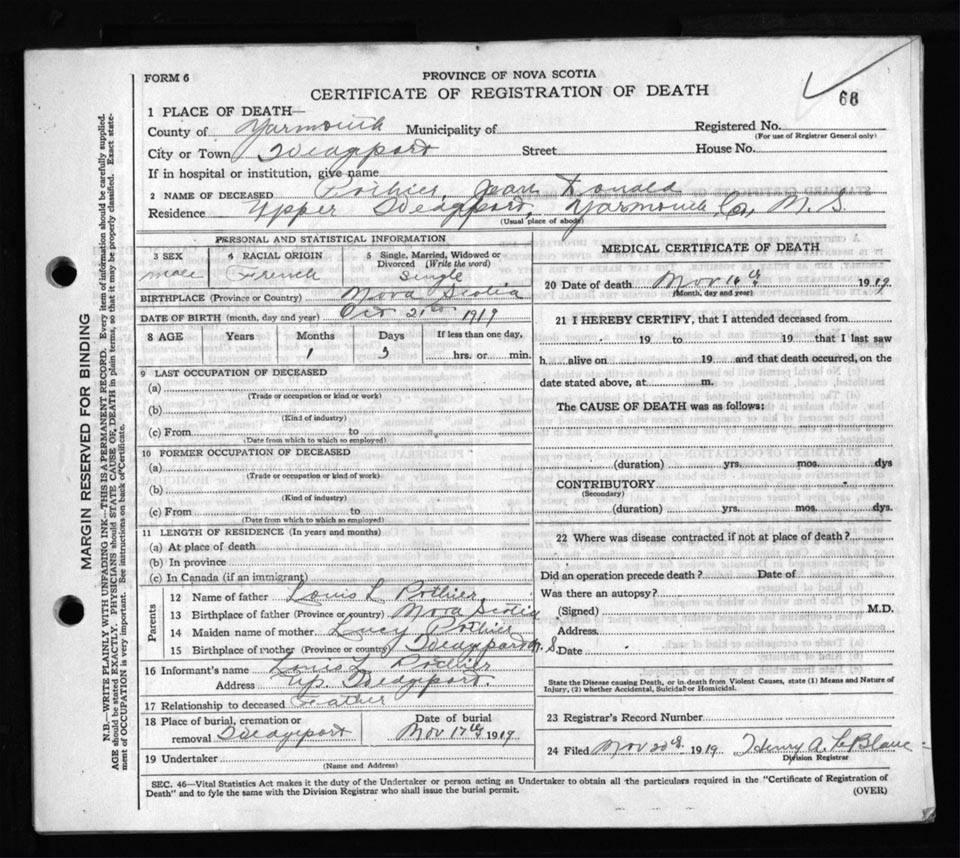 FORM 6
PROVINCE OF NOVA SCOTIA
CERTIFICATE OF REGISTRATION OF DEATH
68
1 PLACE OF DEATH—
County of Yarmouth Municipality of Registered No.
(For use of Registrar General only)
City or Town Wedgeport Street House No.
If in hospital or institution, give name
2 NAME OF DECEASED Pothier, Jean Donald
Residence Upper Wedgeport, Yarmouth Co, N.S.
(Usual place of abode)
PERSONAL AND STATISTICAL INFORMATION
3 SEX
male
4 RACIAL ORIGIN
French
5 Single, Married, Widowed or
Divorced (Write the word)
Single
BIRTHPLACE (Province or Country) Nova Scotia
DATE OF BIRTH (month, day and year) Oct 21st 1919
8 AGE Years Months Days If less than one day,
1 hrs. or min.
9 LAST OCCUPATION OF DECEASED
(a)
(Trade or occupation or kind or work)
(b)
(Kind of industry)
(c) From to
(Date from which to which so employed)
10 FORMER OCCUPATION OF DECEASED
(a)
(Trade or occupation or kind of work)
(b)
(Kind of industry)
(c) From to
(Date from which to which so employed)
11 LENGTH OF RESIDENCE (In years and months)
(a) At place of death
(b) In province
(c) In Canada (if an immigrant)
Parents
12 Name of father Louis L Pothier
13 Birthplace of father (Province or country) Nova Scotia
14 Maiden name of mother Lucy Pothier
15 Birthplace of mother (Province or country) Wedgeport N.S.
16 Informant's name Louis L Pothier
Address Up. Wedgeport.
17 Relationship to deceased Father
18 Place of burial, cremation or
removal Wedgeport
Date of burial
Nov 17th 1919
19 Undertaker
(Name and Address)
MEDICAL CERTIFICATE OF DEATH
20 Date of death Nov 16th 1919
(Month, day and year)
21 I HEREBY CERTIFY, that I attended deceased from
19 to 19 that I last saw
h alive on 19 and that death occurred, on the
date stated above, at m.
The CAUSE OF DEATH was as follows:
(duration) yrs. mos. dys
CONTRIBUTORY
(Secondary)
(duration) yrs. mos. dys.
22 Where was disease contracted if not at place of death?
Did an operation precede death? Date of
Was there an autopsy?
(Signed) M.D.
Address
Date
State the Disease causing Death, or in death from Violent Causes, state (1) Means and Nature of
Injury, (2) whether Accidental, Suicidal or Homicidal.
23 Registrar's Record Number
24 Filed Nov 1919 Henry A LeBlanc
Division Registrar
SEC. 46—Vital Statistics Act makes it the duty of the Undertaker or person acting as Undertaker to obtain all the particulars required in the "Certificate of Registration of
Death" and to fyle the same with the Division Registrar who shall issue the burial permit.
(OVER)
MARGIN RESERVED FOR BINDING
N.B.—WRITE PLAINLY WITH UNFADING INK—THIS IS A PERMANENT RECORD. Every item of information should be carefully supplied.
AGE should be stated EXACTLY. PHYSICIANS should STATE CAUSE OF DEATH in plain terms, so that it may be properly classified. Exact state-
ment of OCCUPATION is very important. See instructions on back of Certificate.